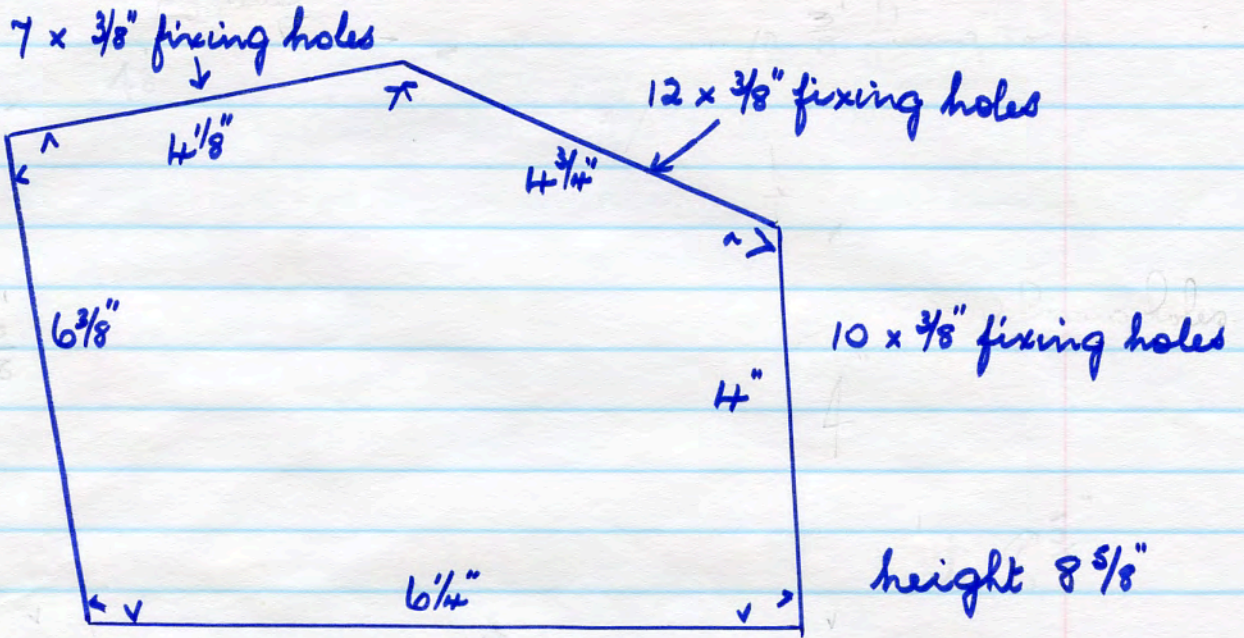 7 x 3/8" fixing holes
12 x 3/8" fixing holes
4 1/8"
4 3/4"
6 3/8"
10 x 3/8" fixing holes
4"
6 1/4"
height 8 5/8"